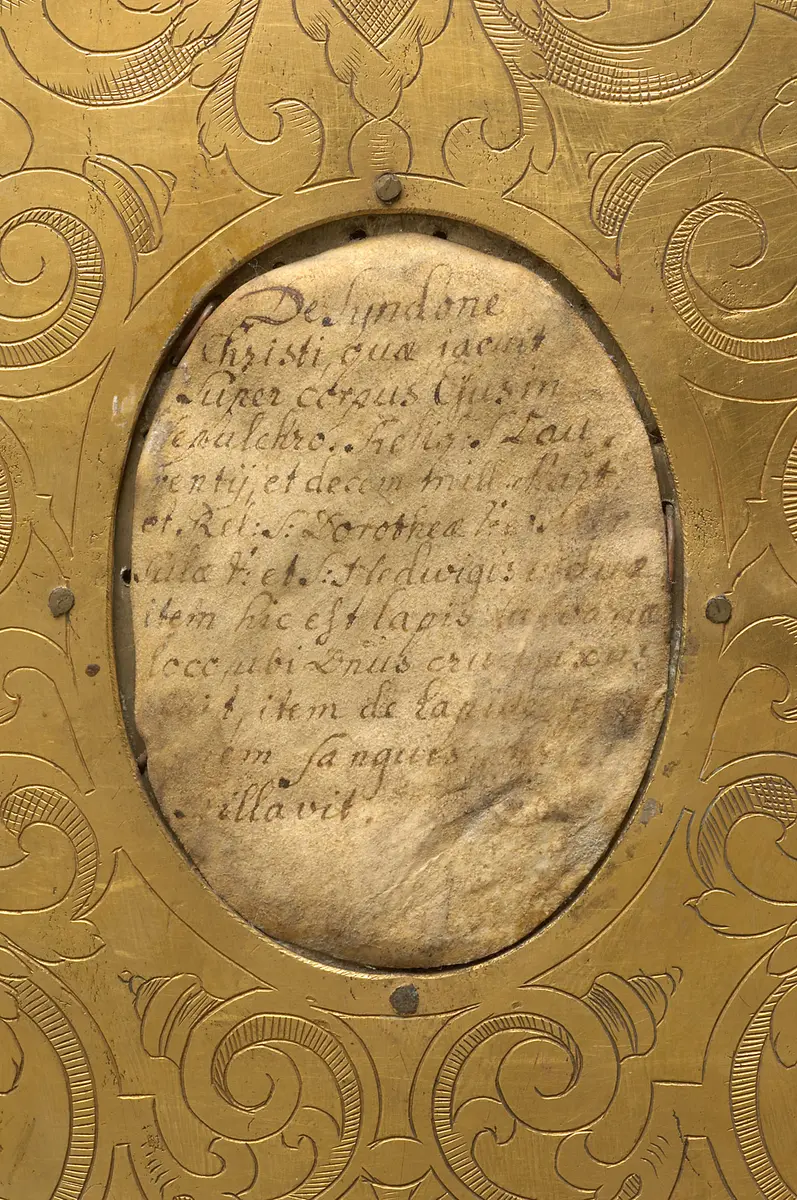 De syndone
Christi, quæ jacuit
super corpus Ejus in
sepulchro. Reliq: S Lau,
rentij, et decem mill. Mart.
et Rel: S: Dorotheæ V:
sulæ V: et S: Hedwigis viduæ
item hic est lapis
loco, ubi Dnûs crucifixus
item de Lapide
sangues
stillavit.